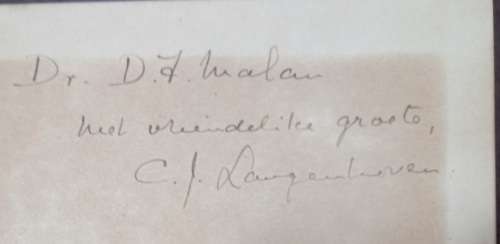 Dr. D.F. Malan
met vriendelike groete,
C.J. Langenhoven.